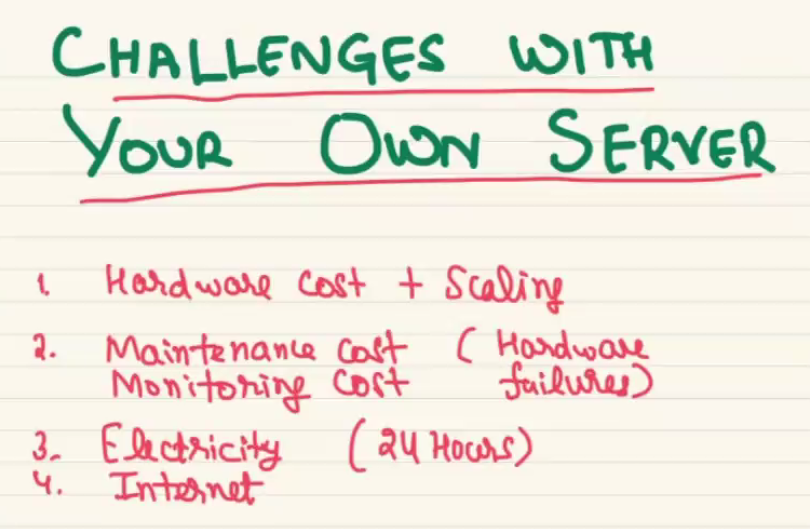 CHALLENGES WITH
YOUR OWN SERVER
1. Hardware cost + Scaling
2. Maintenance cost (Hardware
Monitoring cost failures)
3. Electricity (24 Hours)
4. Internet